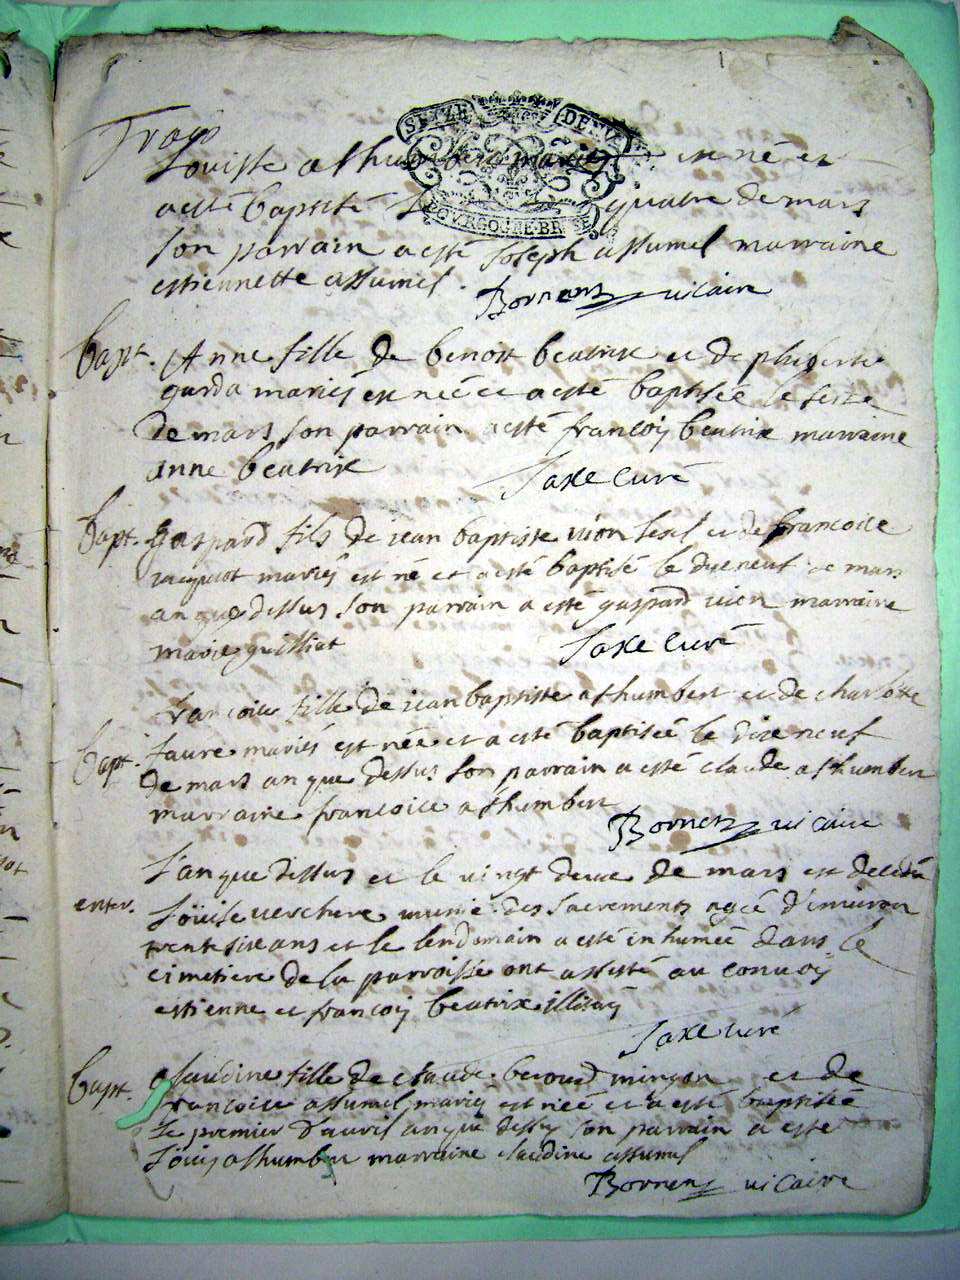 SEIZE DEN
BOURGOGNE BRESSE
Louisse
mariés est né et
a esté baptisé quatre de mars
son parrain a esté Joseph assumel marraine
estiennette assumel.
Bornens vicaire
bapt. Anne fille de benoit beatrix et de phiberte
garda mariés est néé et a esté baptiséé le seize
de mars son parrain a esté francois beatrix marraine
anne beatrix
Saxe curé
Bapt. gaspard fils de jean baptiste vion et de francoise
jacquiot mariés est né et a esté baptisé le dixneuf de mars
an que dessus son parrain a esté gaspard vion marraine
marie guilliat
Saxe curé
francoise fille de jean baptiste assumbert et de charlotte
bapt. faure mariés est néé et a esté baptiséé le dixe neuf
de mars an que dessus son parrain a esté claude
marraine francoise
Bornens vicaire
L'an que dessus et le vingt deux de mars est decedéé
enter. Loüise verchere munie des sacrements agéé d'environ
trente six ans et le lendemain a esté inhuméé dans le
cimetiere de la parroisse ont assisté au convoy
estienne et francois beatrix
Saxe curé
bapt. claudine fille de claude beroud et de
francoise assumel mariés est néé et a esté baptiséé
Le premier d'avril an que dessus son parrain a esté
Loüis marraine claudine assumel
Bornens vicaire